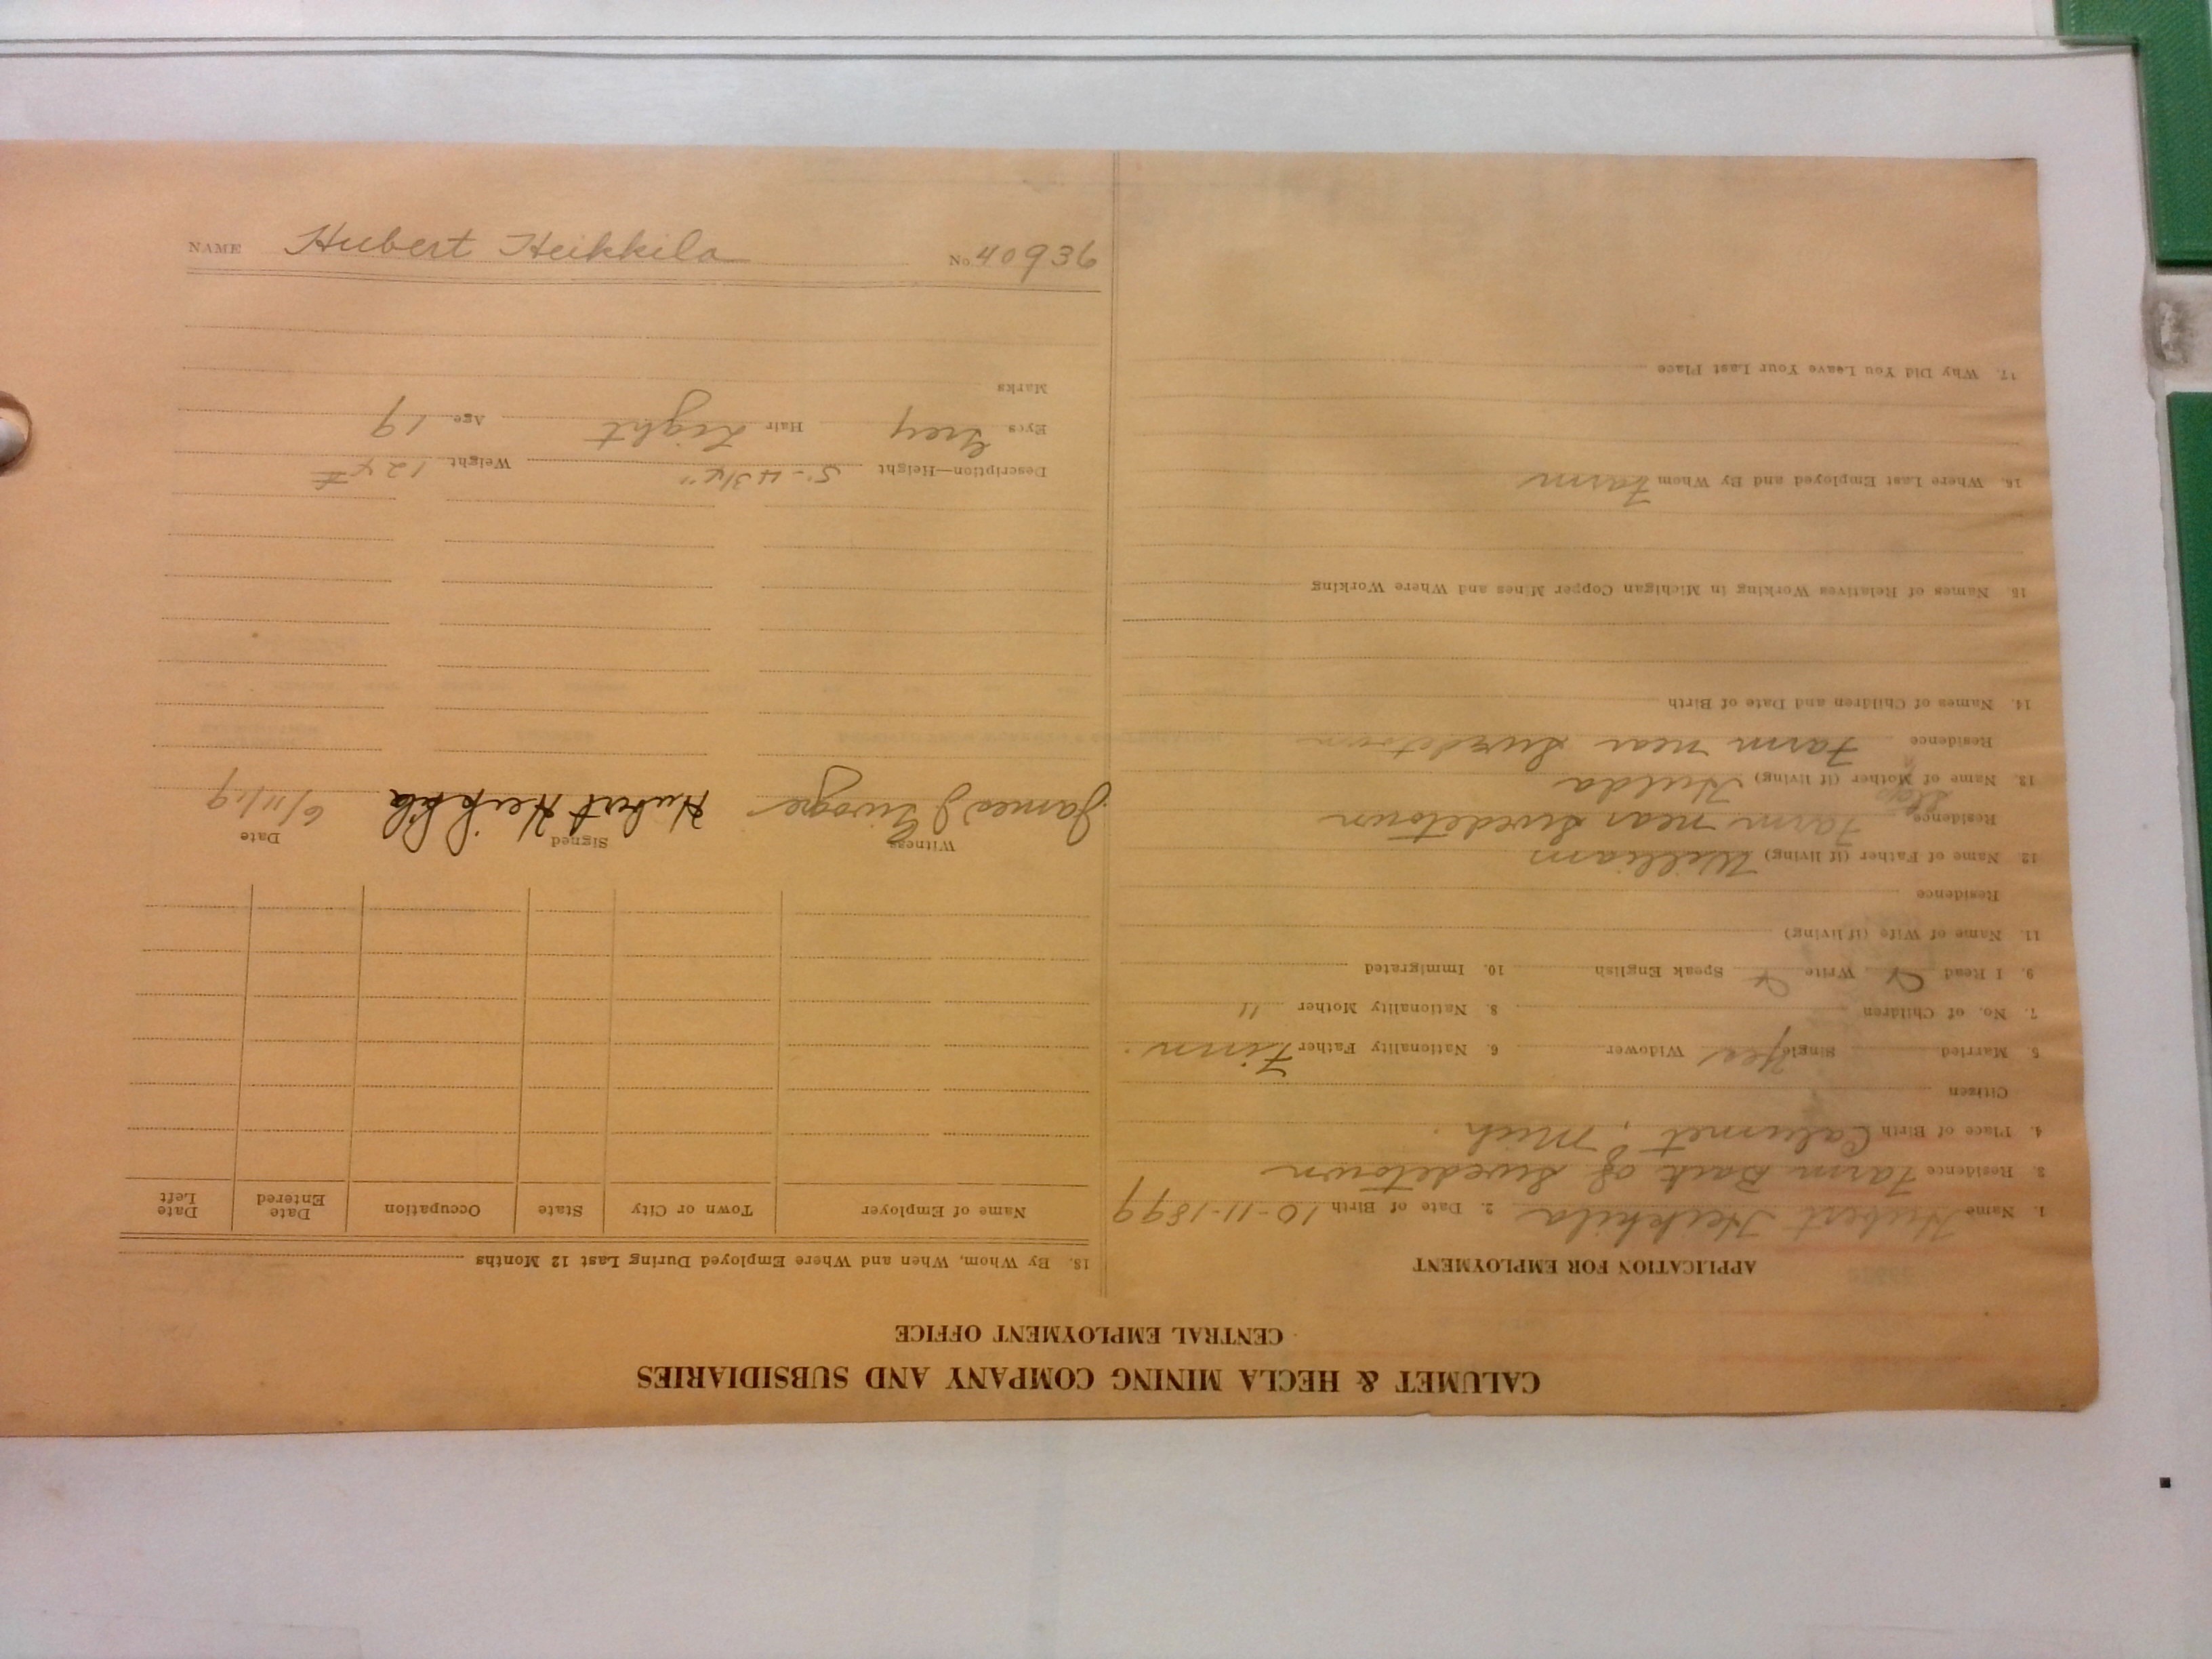 NAME Hubert Heikkila No. 40936
CALUMET & HECLA MINING COMPANY AND SUBSIDIARIES
CENTRAL EMPLOYMENT OFFICE
APPLICATION FOR EMPLOYMENT
1. Name Hubert Heikkila 2. Date of Birth 10-11-1899
3. Residence Farm Back of Swedetown
4. Place of Birth Calumet, Mich.
Citizen
5. Married Single Yes Widower 6. Nationality Father Finn.
7. No. of Children 8. Nationality Mother "
9. I Read Write Speak English 10. Immigrated
11. Name of Wife (if living)
Residence
12. Name of Father (if living) William
Residence Farm near Swedetown
13. Name of Mother (if living) Hulda
Residence Farm near Swedetown
14. Names of Children and Date of Birth
15. Names of Relatives Working in Michigan Copper Mines and Where Working
16. Where Last Employed and By Whom Farm
17. Why Did You Leave Your Last Place
18. By Whom, When and Where Employed During Last 12 Months
Name of Employer Town or City State Occupation Date Entered Date Left
Witness Signed Date
James J Hubert Heikkila 6/11/19
Description—Height 5'-4 3/4" Weight 124 #
Eyes Grey Hair Light Age 19
Marks